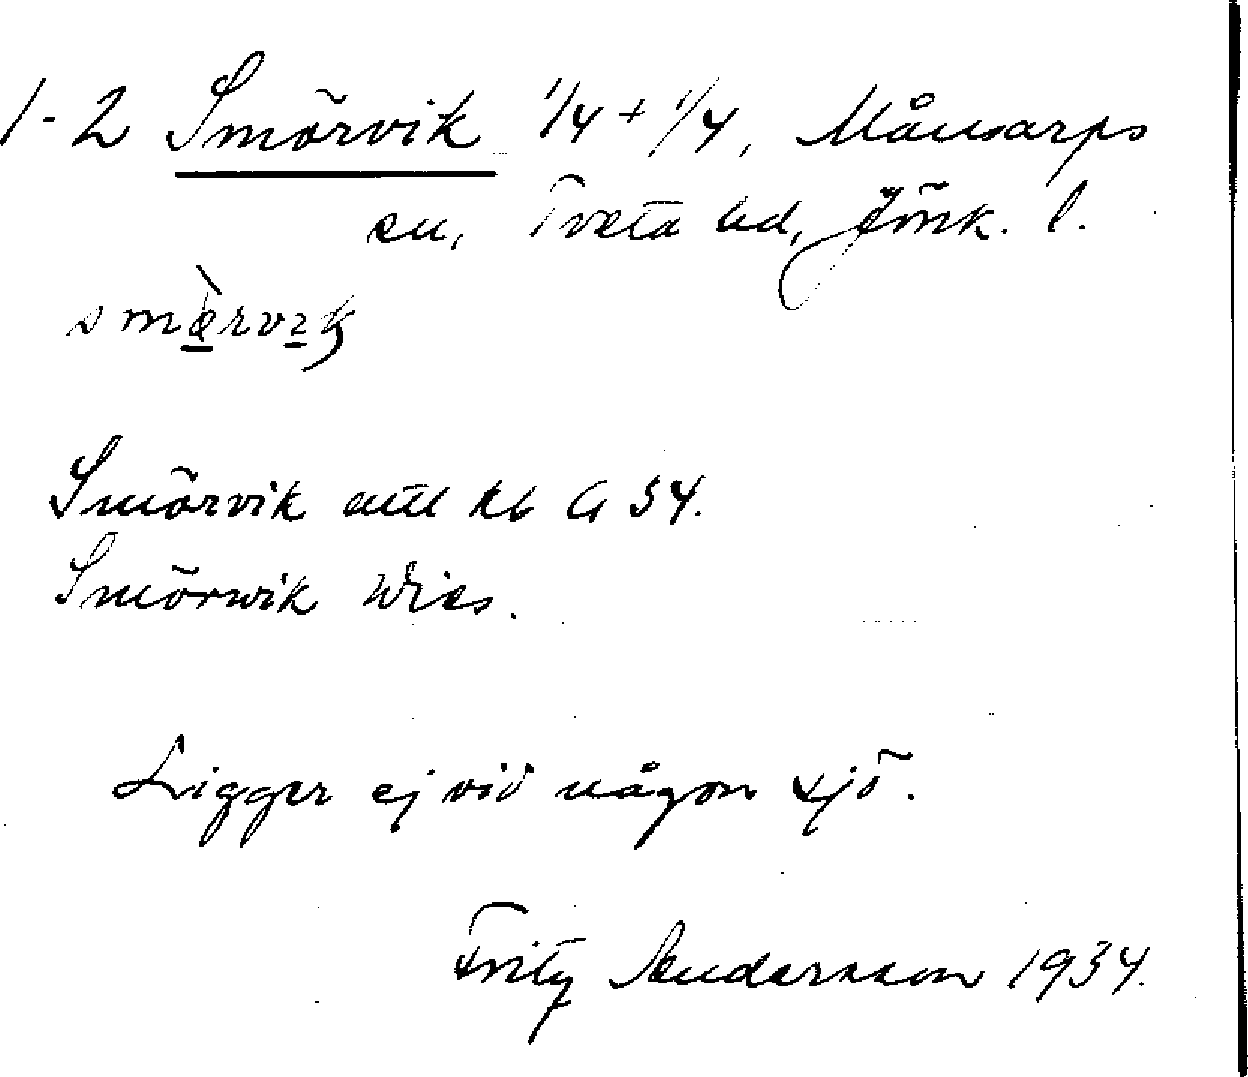 1-2 Smörvik 1/4 + 1/4, Månsarps
sn, Tveta hd, Jönk. l.
smærvik
Smörvik utt kb G 34.
Smörwik Wies.
Ligger ej vid någon sjö.
Fritz Andersson 1934.